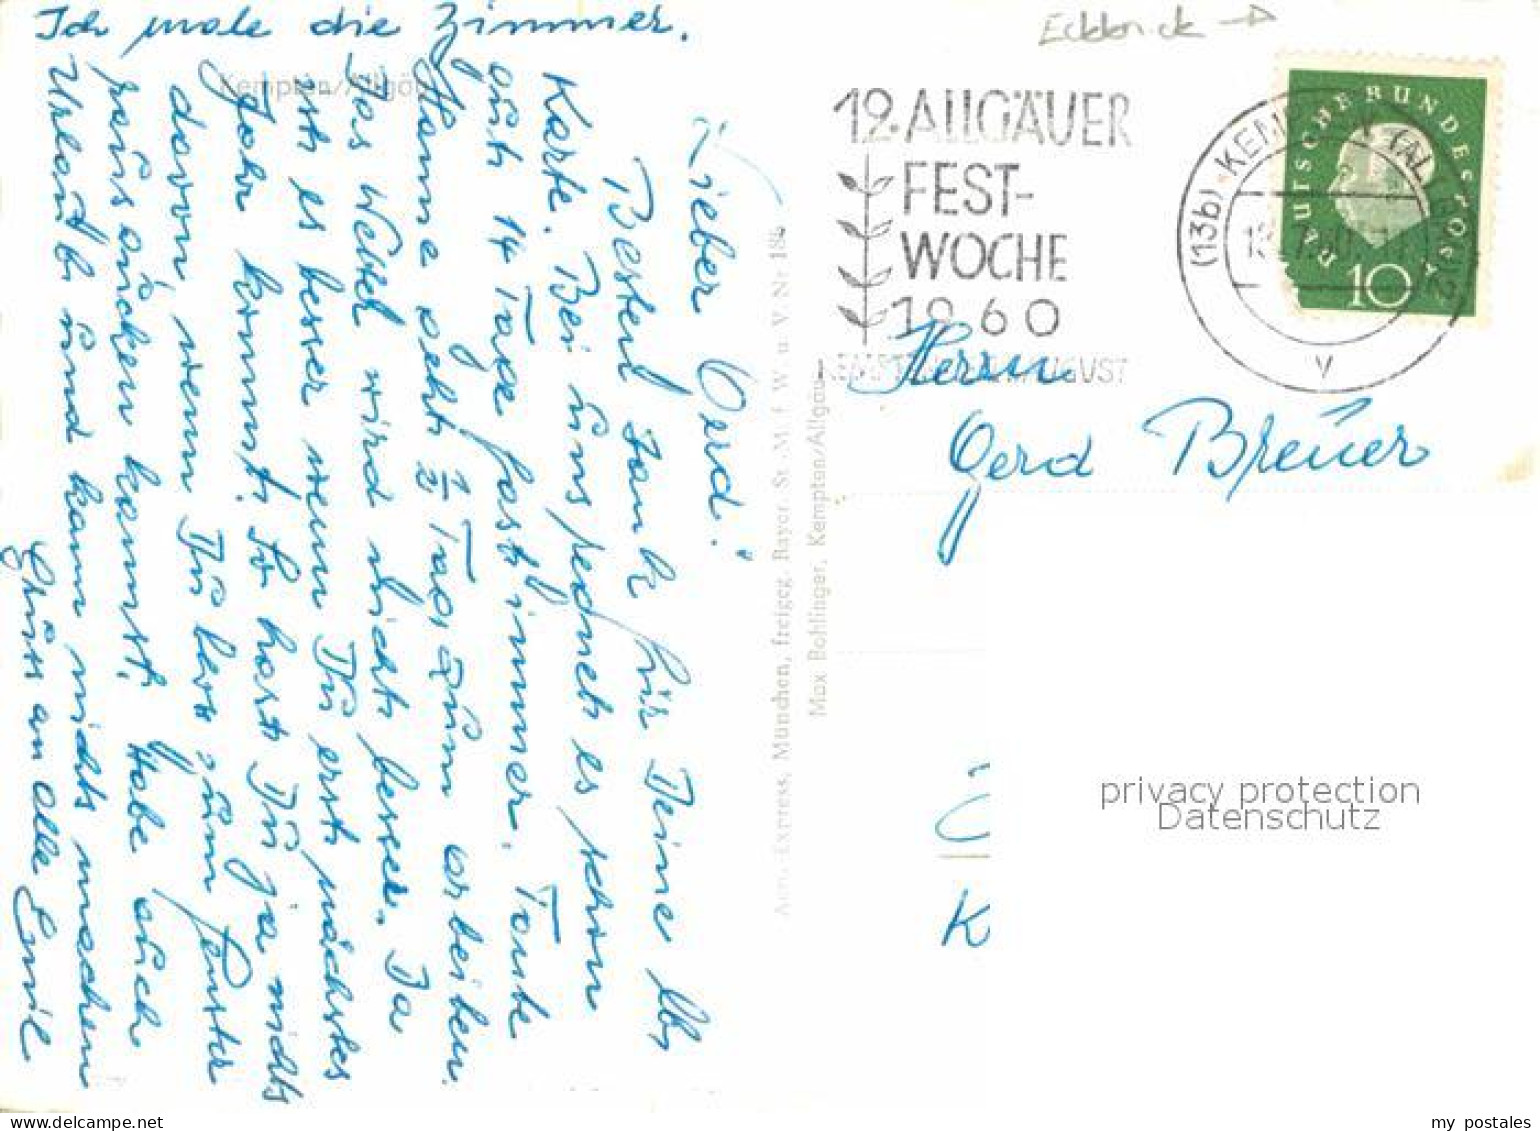 Ich male die Zimmer.
Kempten/Allgäu
Lieber Gerd!
Besten Dank für Deine lb,
Karte. Bei uns regnets es schon
auch 14 Tage fast immer. Tante
Hanne geht 1/2 Tag, zum arbeiten.
Das Wetter wird nicht besser. Da
ists es besser wenn Du erst nächstes
Jahr kommst. So hast Du ja nichts
davon, wenn Du bloss zum Fenster
rausgucken kannst. Habe auch
Urlaub und kann nichts machen
Gruss an alle Emil
Aero-Express, München, freigeg. Bayer. St. M. f. W. u. V. Nr. 186
Max Bohlinger, Kempten/Allgäu
Eckknick →
12. ALLGÄUER
FEST-
WOCHE
1960
AUGUST
(13b) KEMPTEN (ALLGÄU)
DEUTSCHE BUNDESPOST
10
v
Herrn
Gerd Breuer
K
privacy protection
Datenschutz
my postales